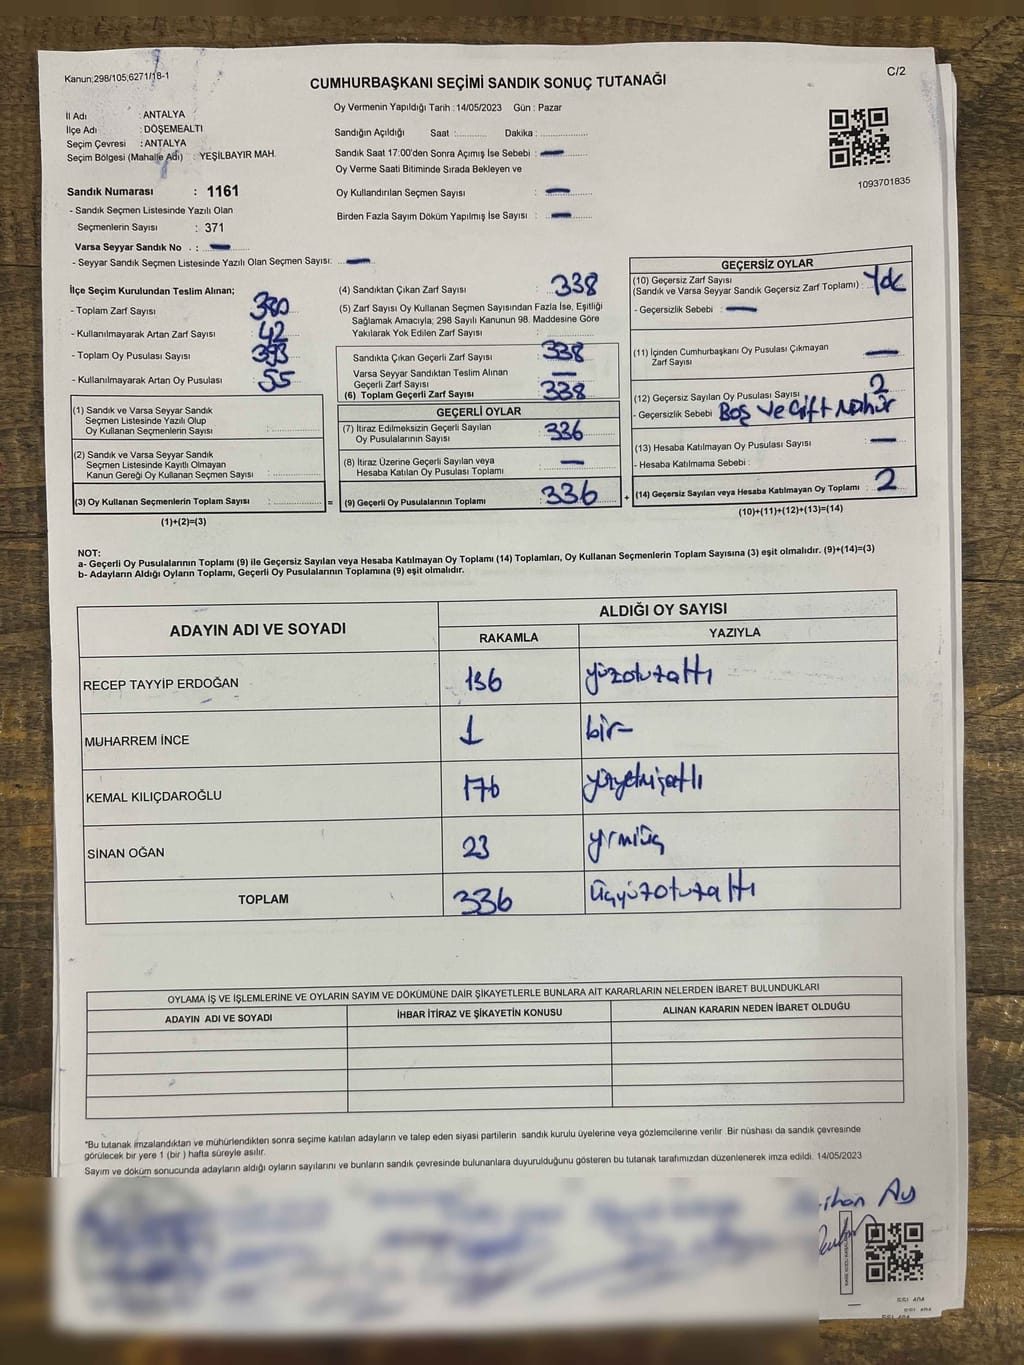 Kanun;298/105,6271/18-1
C/2
CUMHURBAŞKANI SEÇİMİ SANDIK SONUÇ TUTANAĞI
Oy Vermenin Yapıldığı Tarih : 14/05/2023 Gün : Pazar
İl Adı : ANTALYA
İlçe Adı : DÖŞEMEALTI
Seçim Çevresi : ANTALYA
Seçim Bölgesi (Mahalle Adı) : YEŞİLBAYIR MAH.
Sandık Numarası : 1161
- Sandık Seçmen Listesinde Yazılı Olan
Seçmenlerin Sayısı : 371
Varsa Seyyar Sandık No . : —
- Seyyar Sandık Seçmen Listesinde Yazılı Olan Seçmen Sayısı: —
Sandığın Açıldığı Saat :.......... Dakika : ...............
Sandık Saat 17:00'den Sonra Açımış İse Sebebi : —
Oy Verme Saati Bitiminde Sırada Bekleyen ve
Oy Kullandırılan Seçmen Sayısı : —
Birden Fazla Sayım Döküm Yapılmış İse Sayısı : —
1093701835
İlçe Seçim Kurulundan Teslim Alınan;
- Toplam Zarf Sayısı : 380
- Kullanılmayarak Artan Zarf Sayısı : 42
- Toplam Oy Pusulası Sayısı : 393
- Kullanılmayarak Artan Oy Pusulası : 55
(1) Sandık ve Varsa Seyyar Sandık
Seçmen Listesinde Yazılı Olup
Oy Kullanan Seçmenlerin Sayısı :
(2) Sandık ve Varsa Seyyar Sandık
Seçmen Listesinde Kayıtlı Olmayan
Kanun Gereği Oy Kullanan Seçmen Sayısı :
(3) Oy Kullanan Seçmenlerin Toplam Sayısı : =
(1)+(2)=(3)
(4) Sandıktan Çıkan Zarf Sayısı : 338
(5) Zarf Sayısı Oy Kullanan Seçmen Sayısından Fazla İse, Eşitliği
Sağlamak Amacıyla; 298 Sayılı Kanunun 98. Maddesine Göre
Yakılarak Yok Edilen Zarf Sayısı :
Sandıkta Çıkan Geçerli Zarf Sayısı : 338
Varsa Seyyar Sandıktan Teslim Alınan
Geçerli Zarf Sayısı : —
(6) Toplam Geçerli Zarf Sayısı : 338
GEÇERLİ OYLAR
(7) İtiraz Edilmeksizin Geçerli Sayılan
Oy Pusulalarının Sayısı : 336
(8) İtiraz Üzerine Geçerli Sayılan veya
Hesaba Katılan Oy Pusulası Toplamı : —
(9) Geçerli Oy Pusulalarının Toplamı : 336 +
GEÇERSİZ OYLAR
(10) Geçersiz Zarf Sayısı
(Sandık ve Varsa Seyyar Sandık Geçersiz Zarf Toplamı) : Yok
- Geçersizlik Sebebi : —
(11) İçinden Cumhurbaşkanı Oy Pusulası Çıkmayan
Zarf Sayısı : —
(12) Geçersiz Sayılan Oy Pusulası Sayısı : 2
- Geçersizlik Sebebi : Boş ve Çift Mühür
(13) Hesaba Katılmayan Oy Pusulası Sayısı : —
- Hesaba Katılmama Sebebi :
(14) Geçersiz Sayılan veya Hesaba Katılmayan Oy Toplamı : 2
(10)+(11)+(12)+(13)=(14)
NOT:
a- Geçerli Oy Pusulalarının Toplamı (9) ile Geçersiz Sayılan veya Hesaba Katılmayan Oy Toplamı (14) Toplamları, Oy Kullanan Seçmenlerin Toplam Sayısına (3) eşit olmalıdır. (9)+(14)=(3)
b- Adayların Aldığı Oyların Toplamı, Geçerli Oy Pusulalarının Toplamına (9) eşit olmalıdır.
ADAYIN ADI VE SOYADI ALDIĞI OY SAYISI
RAKAMLA YAZIYLA
RECEP TAYYİP ERDOĞAN 136 yüzotuzaltı
MUHARREM İNCE 1 bir
KEMAL KILIÇDAROĞLU 176 yüzyetmişaltı
SİNAN OĞAN 23 yirmiüç
TOPLAM 336 üçyüzotuzaltı
OYLAMA İŞ VE İŞLEMLERİNE VE OYLARIN SAYIM VE DÖKÜMÜNE DAİR ŞİKAYETLERLE BUNLARA AİT KARARLARIN NELERDEN İBARET BULUNDUKLARI
ADAYIN ADI VE SOYADI İHBAR İTİRAZ VE ŞİKAYETİN KONUSU ALINAN KARARIN NEDEN İBARET OLDUĞU
*Bu tutanak imzalandıktan ve mühürlendikten sonra seçime katılan adayların ve talep eden siyasi partilerin sandık kurulu üyelerine veya gözlemcilerine verilir. Bir nüshası da sandık çevresinde
görülecek bir yere 1 (bir ) hafta süreyle asılır.
Sayım ve döküm sonucunda adayların aldığı oyların sayılarını ve bunların sandık çevresinde bulunanlara duyurulduğunu gösteren bu tutanak tarafımızdan düzenlenerek imza edildi. 14/05/2023